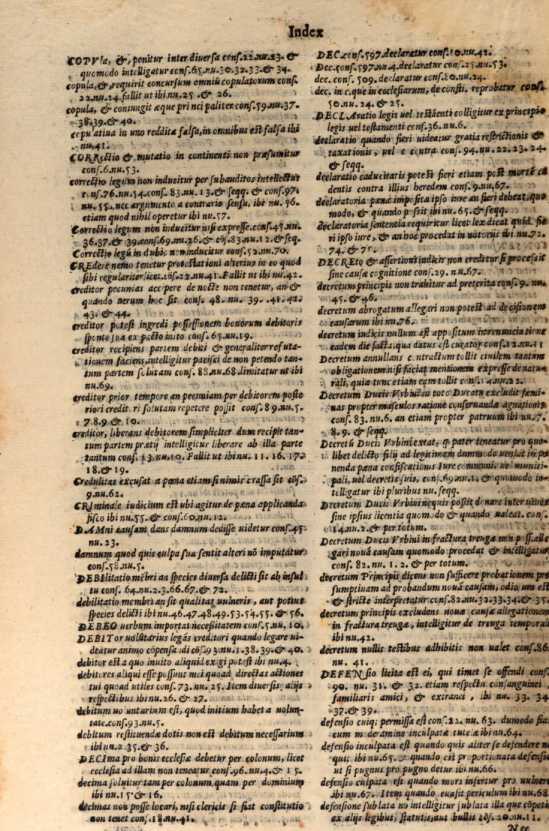 Index
COPVla, &, ponitur inter diuersa cons.22.nu.23. &
quomodo intelligatur cons.65.nu.30.32.33.& 34.
copula,&,requirit concursum omniũ copulatorum cons.
22.nu.24.fallit ut ibi nu.25. & 26.
copula, & coniungit æque principaliter.cons.59.nu.37.
38.39.& 40.
copulatiua in uno reddita falsa,in omnibus est falsa ibi
nu.41.
CORRectio & mutatio in continenti non præsumitur
cons.6.nu.53.
correctio legum non inducitur per subauditos intellectus
cons.76.nu.14.cons. 83.nu. 13.& seqq. & cons.97.
nu. 55. nec argumento a contrario sensu. ibi nu. 56.
etiam quod nihil operetur ibi nu.57.
Correctio legum non inducitur nisi expresse.cons.45.nu.
36.37.& 39.cons.69.nu.26.& cons.83.nu.12.& seq.
Correctio legũ in dubio non inducitur cons.52.nu.70.
CREdere nemo tenetur protestationi alterius in eo quod
sibi regulariter licet.cons.22.nu.41. Fallit ut ibi nu.42.
creditor pecunias accipere de nocte non tenetur, an &
quando uerum hoc sit cons. 48. nu. 39. 41. 42.
43. & 44.
creditor potest ingredi possessionem bonorum debitoris
sponte sua ex pacto inito cons.65.nu.19.
creditor recipiens partem debiti & generaliter refuta-
tionem faciens,intelligitur pacisci de non petendo tan-
tum partem solutam cons. 88.nu.68 limitatur ut ibi
nu.69.
creditor prior tempore an pecuniam per debitorem poste
riori creditori solutam repetere possit cons.89.nu.5.
7.8.9.& 10.
creditor, liberans debitorem simpliciter dum recipit tan-
tum partem pretij intelligitur liberare ab illa parte
tantum cons. 13.nu.10. Fallit ut ibi nu. 11. 16. 17.
18.& 19.
Credulitas excusat a pœna etiam si nimis crassa sit cons.
9.nu.62.
CRIminale iudicium est ubi agitur de pœna applicanda
fisco ibi nu.55.& cons.60.nu.12.
DAMNi causam dans damnum dedisse uidetur cons.45.
nu.23.
damnum quod quis culpa sua sentit alteri nõ imputatur
cons.58.nu.5.
DEBilitatio mẽbri an species diuersa delicti sit ab insul
tu cons. 64.nu.2.3.66.67.& 72.
debilitatio membri an sit qualitas uulneris, aut potius
species delicti ibi nu.46.47.48.49.53.54.55. & 56.
DEBEO uerbum importat necessitatem cons.5.nu. 10.
DEBITor uolũtarius legãs creditori quando legare ui-
deatur animo cõpensãdi cõs.93.nu.1.38.39.& 40.
debitor est a quo inuito aliquid exigi potest ibi nu.4.
debitores aliqui esse possunt modi quoad directas actiones
tui quoad utiles cons.73. nu.25. Item diuersis alijs
respectibus ibi nu.26.& 27.
debitum uoluntarium est, quod initium habet a uolun-
tate.cons.93.nu.5.
debitum restituendæ dotis non est debitum necessarium
ibi nu.2.35.& 36.
DECIma pro bonis ecclesiæ debetur per colonum, licet
ecclesia ad illam non teneatur cons.96.nu.4.& 15.
decima soluitur tam per colonum, quam per dominium
ibi nu.15.& 16.
decimas non posse locari, nisi clericis si sint constitutio
non tenet cons.18.nu.41.
DEC.cons.597.declaratur cons.10.nu.42.
Dec.cons.597.nu.4.declaratur cons.25.nu.53.
dec. cons. 509. declaratur cons.20.nu.24.
dec. in c.que in ecclesiarum, de consti. reprobatur cons.
50.nu.24. & 25.
DECLAratio legis uel testienti colligitur ex principio
legis uel testamenti cons.36.nu.6.
declaratio quando fieri uideatur gratia restrictionis &
taxationis, uel e contra cons. 94. nu. 22. 23. 24
& seqq.
declaratio caducitatis potest fieri etiam post mortẽ ca
dentis contra illius heredem cons.9.nu.67.
declaratoria pœnæ imposita ipso iure an fieri debeat,quo
modo, & quando possit ibi nu.65.& seqq.
declaratoria sententia requiritur licet lex dicat quid fie
ri ipso iure, & an hoc procedat in notorijs ibi nu.72.
74. & 71.
DECREto & assertioni iudicis non creditur si processit
sine causæ cognitione cons.29. nu.67.
decretum principis non trahitur ad preterita cons.9. nu.
45. & 46.
decretum abrogatum allegari non potest ad decisionem
causarum ibi nu.76.
decretum iudicis nullum est appositum incontinenti sine
eadem die facta,qua datus est curator cons.22.nu.11
Decretum annullans contractum tollit ciuilem tantum
obligationem nisi faciat mentionem expresse de natu-
rali, quia tunc etiam eum tollit cons.14.nu.2.
Decretum Ducis Vrbini in toto Ducatu excludit femi-
nas propter masculos ratione conseruandæ agnationis
cons. 83. nu.6. an etiam propter patruum ibi nu.7.
8.9. & seqq.
Decretũ Ducis Vrbini extat, q. pater teneatur pro quo-
libet delicto filij ad legitimam dummodo ueniat im po
nenda pœna confiscationis Iure communis uel munici-
pali, uel decretis iuris, cons.69.nu.1. & quomodo in-
telligatur ibi pluribus nu. seqq.
Decretum Ducis Vrbini nequis possit donare inter uiuos
sine ipsius licentia quomodo & quando ualeat. cons.
14.nu.2.& per totum.
Decretum Ducis Vrbini in fractura treuga non possit alle
gari noua causam quomodo procedat & intelligatur
cons. 82. nu. 1. 2. & per totum.
decretum Principis dicens non sufficere probationem præ
sumptiuam ad probandum nouã causam, odio, um est
& stricte interpretatur cons.82.nu.32.33.34.& 35.
decretum principis excludens noua causæ allegationem
in fractura treuga, intelligitur de treuga temporali
ibi nu.42.
decretum nullis testibus adhibitis non ualet cons.86.
nu. 41.
DEFENsio licita est ei, qui timet se offendi cons.
90. nu. 31. & 32. etiam respectu consanguinei
familiaris amici, & extranei, ibi nu. 33. 34
37.& 39.
defensio cuiq; permissa est cons.22. nu. 63. dumodo fiat
cum moderamine inculpatæ tutelæ ibi nu.64.
defensio inculpata est quando quis aliter se defendere ne
quit ibi nu.65. & quando est proportionata defensio
ut si pugnus pro pugno detur ibi nu.66.
defensio culpata est quando mors infertur pro uulnere
ibi nu.67. Item quando euasit periculum ibi nu.68
defensione sublata nõ intelligitur sublata illa que cõpetit
ex alijs legibus, statutis,aut bullis cõs.20.nu.11.
Nee